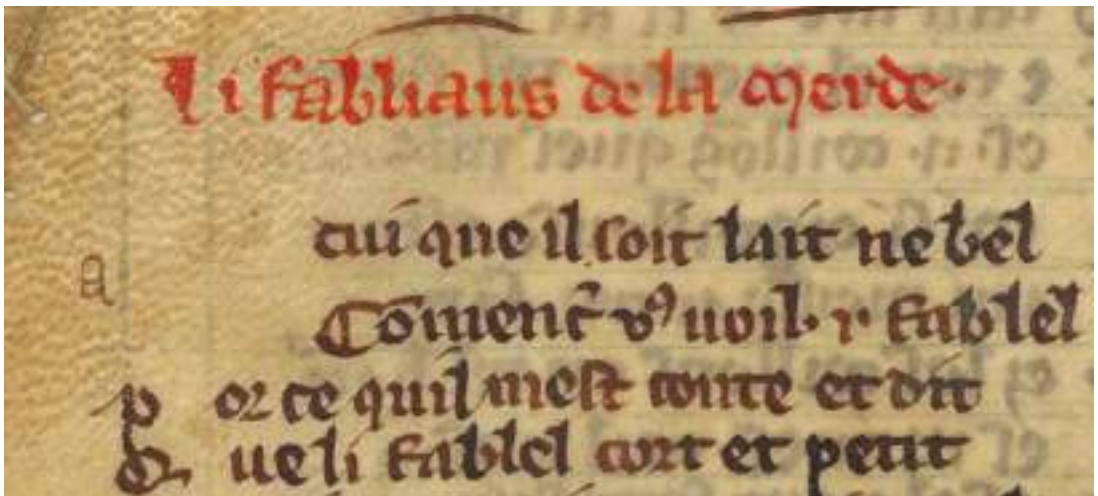 Li fabliaus de la merde.
a
cui que il soit lait ne bel
Comencr̄ vꝰ uoil .i. fablel
P or ce quil mest conte et dit
Q ue li fablel cort et petit